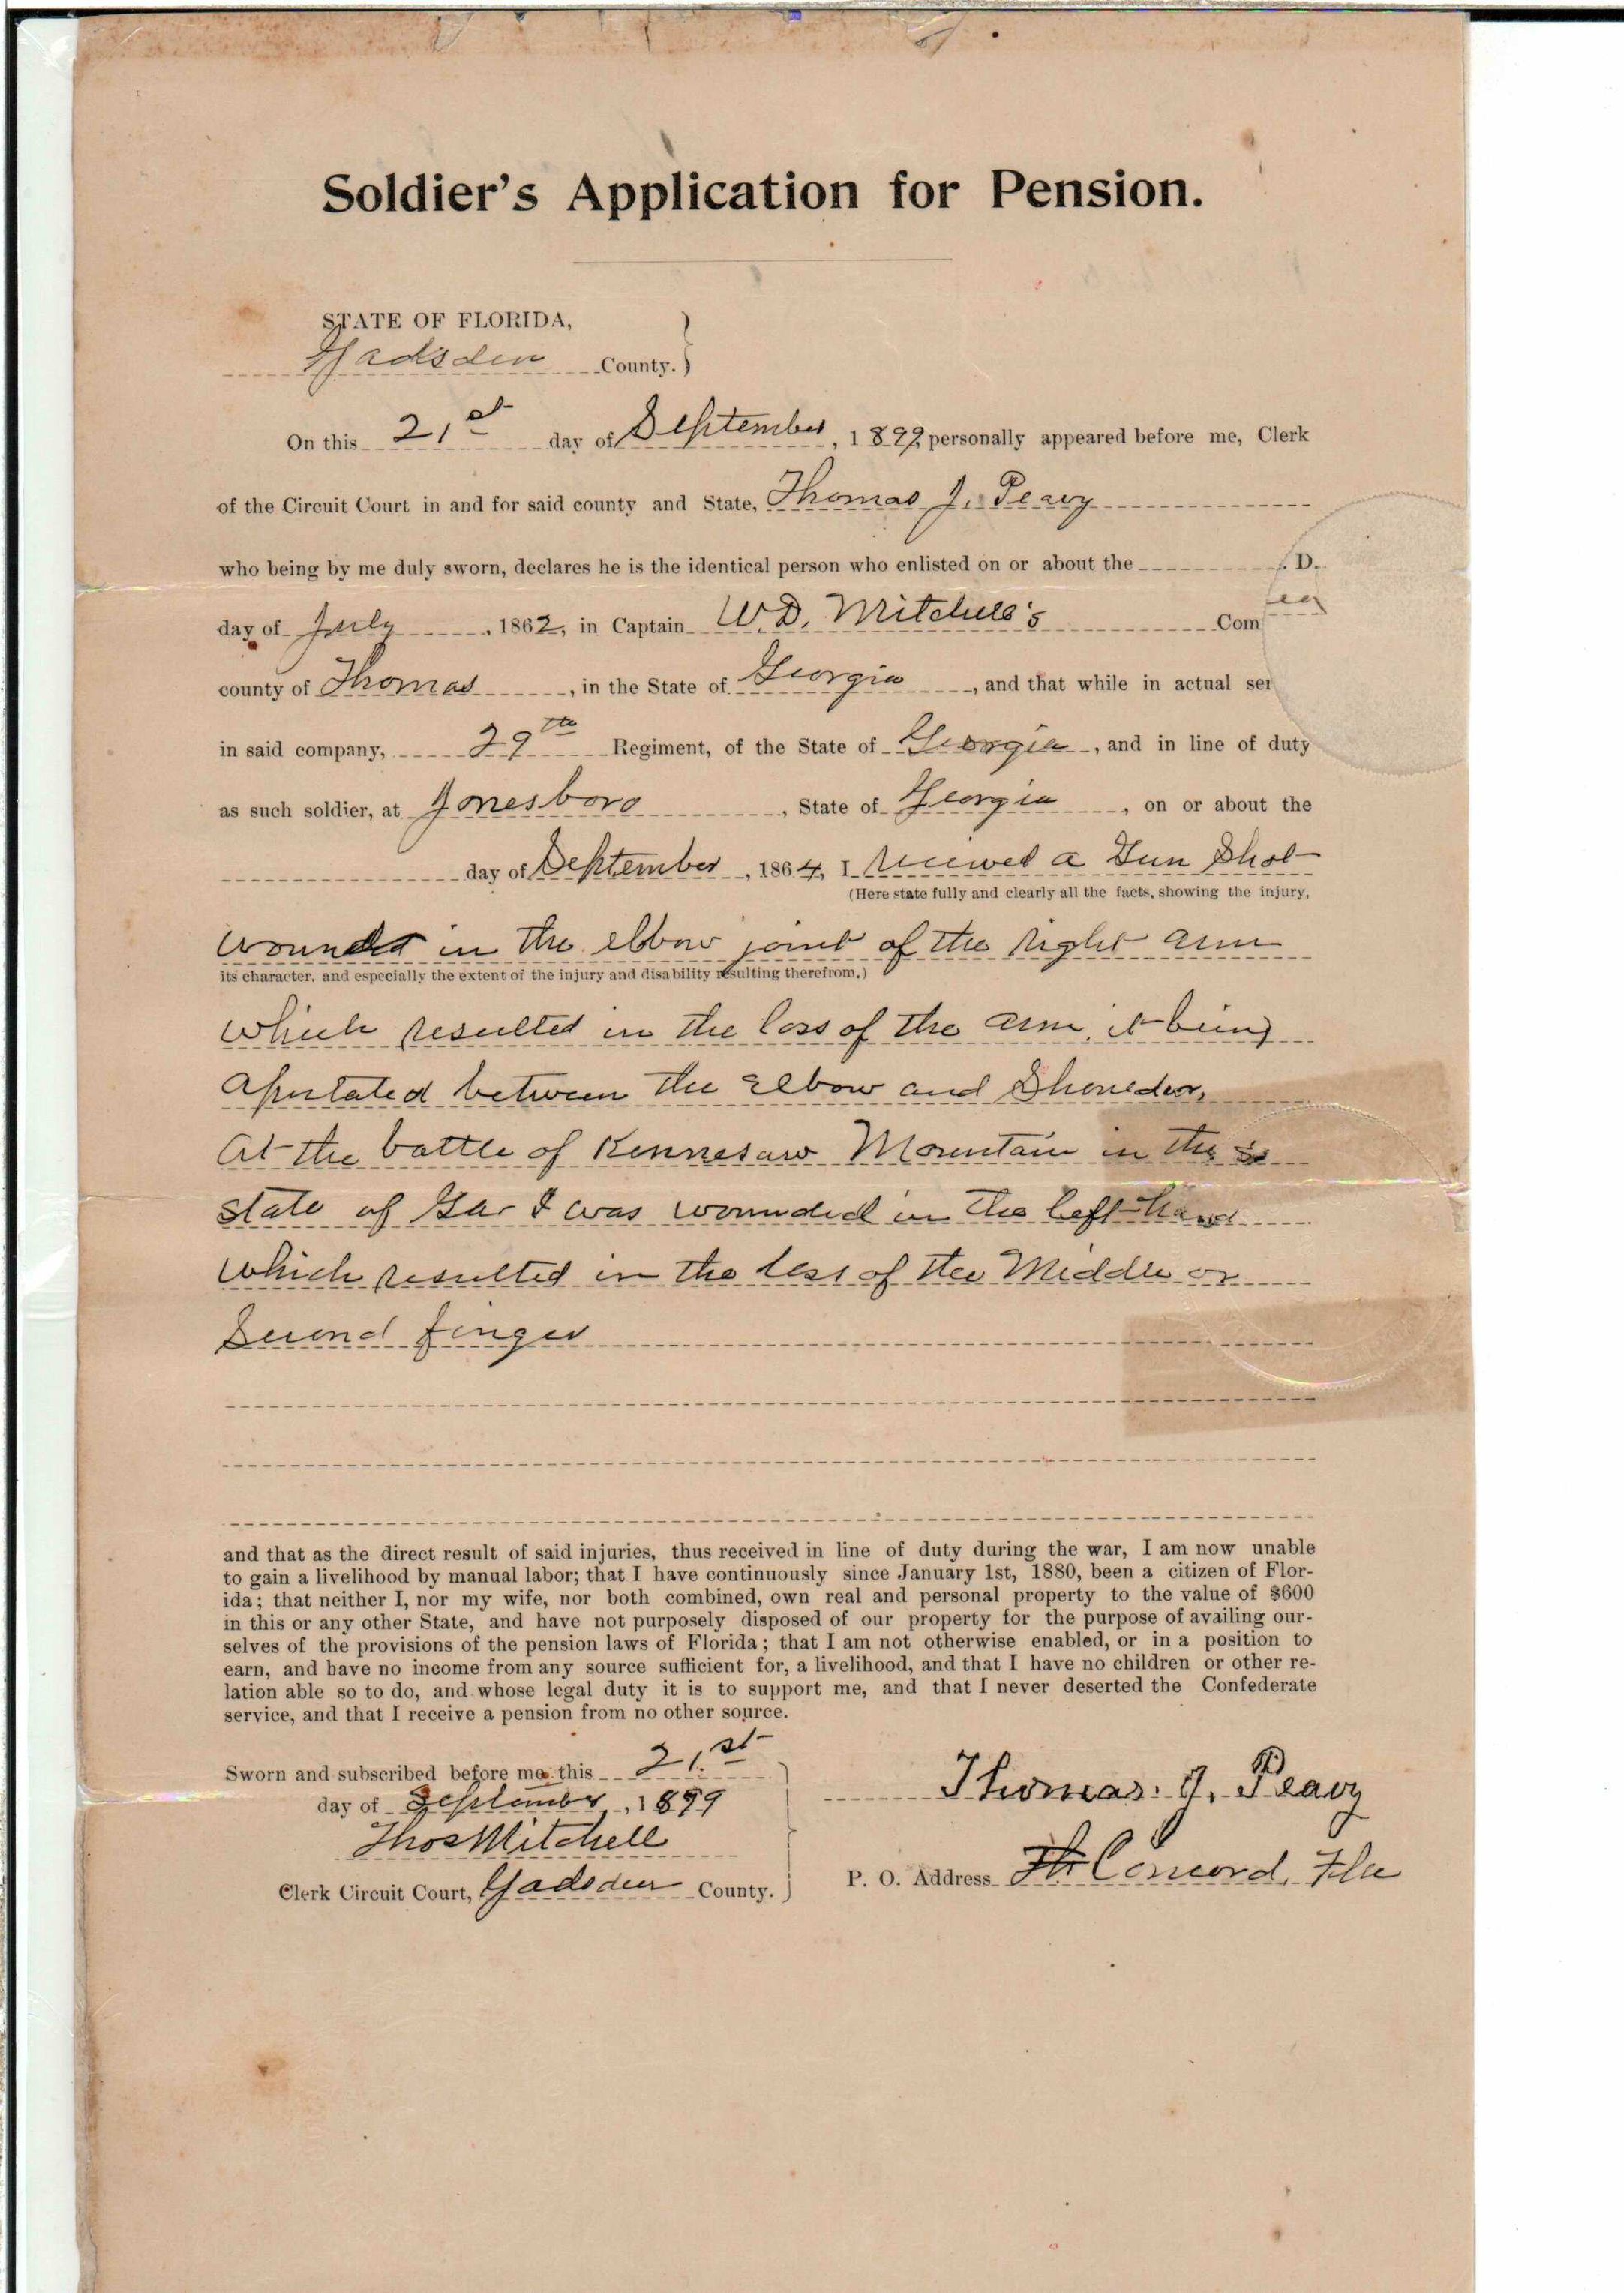 Soldier's Application for Pension.
STATE OF FLORIDA,
Gadsden County.
On this 21st day of September, 1899, personally appeared before me, Clerk
of the Circuit Court in and for said county and State, Thomas J. Peavy
who being by me duly sworn, declares he is the identical person who enlisted on or about the D.
day of July, 1862, in Captain W. D. Mitchell's Com
county of Thomas, in the State of Georgia, and that while in actual ser
in said company, 29th Regiment, of the State of Georgia, and in line of duty
as such soldier, at Jonesboro, State of Georgia, on or about the
day of September, 1864, I received a Gun Shot
(Here state fully and clearly all the facts, showing the injury,
wounded in the elbow joint of the right arm
its character, and especially the extent of the injury and disability resulting therefrom.)
which resulted in the loss of the arm, it being
aputated between the Elbow and Shoulder,
At the battle of Kennesaw Mountain in the
state of Ga I was wounded in the left hand
which resulted in the loss of the Middle or
Second finger
and that as the direct result of said injuries, thus received in line of duty during the war, I am now unable
to gain a livelihood by manual labor; that I have continuously since January 1st, 1880, been a citizen of Flor-
ida; that neither I, nor my wife, nor both combined, own real and personal property to the value of $600
in this or any other State, and have not purposely disposed of our property for the purpose of availing our-
selves of the provisions of the pension laws of Florida; that I am not otherwise enabled, or in a position to
earn, and have no income from any source sufficient for, a livelihood, and that I have no children or other re-
lation able so to do, and whose legal duty it is to support me, and that I never deserted the Confederate
service, and that I receive a pension from no other source.
Sworn and subscribed before me this 21st
day of September, 1899
Thos Mitchell
Clerk Circuit Court, Gadsden County.
Thomas. J. Peavy
P. O. Address Concord, Fla